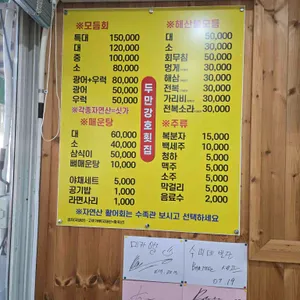 ※모듬회
특대 150,000
대 120,000
중 100,000
소 80,000
광어+우럭 80,000
광어 50,000
우럭 50,000
※각종자연산=싯가
※매운탕
대 60,000
소 40,000
삼식이 50,000
뼈매운탕 10,000
야채세트 5,000
공기밥 1,000
라면사리 1,000
두만강호횟집
※해산물모듬
대 50,000
소 30,000
회무침 50,000
멍게 30,000
해삼 30,000
전복 50,000
가리비 30,000
전복소라 30,000
※주류
복분자 15,000
백세주 10,000
청하 5,000
맥주 5,000
소주 5,000
막걸리 5,000
음료수 2,000
※자연산 활어회는 수족관 보시고 선택하세요